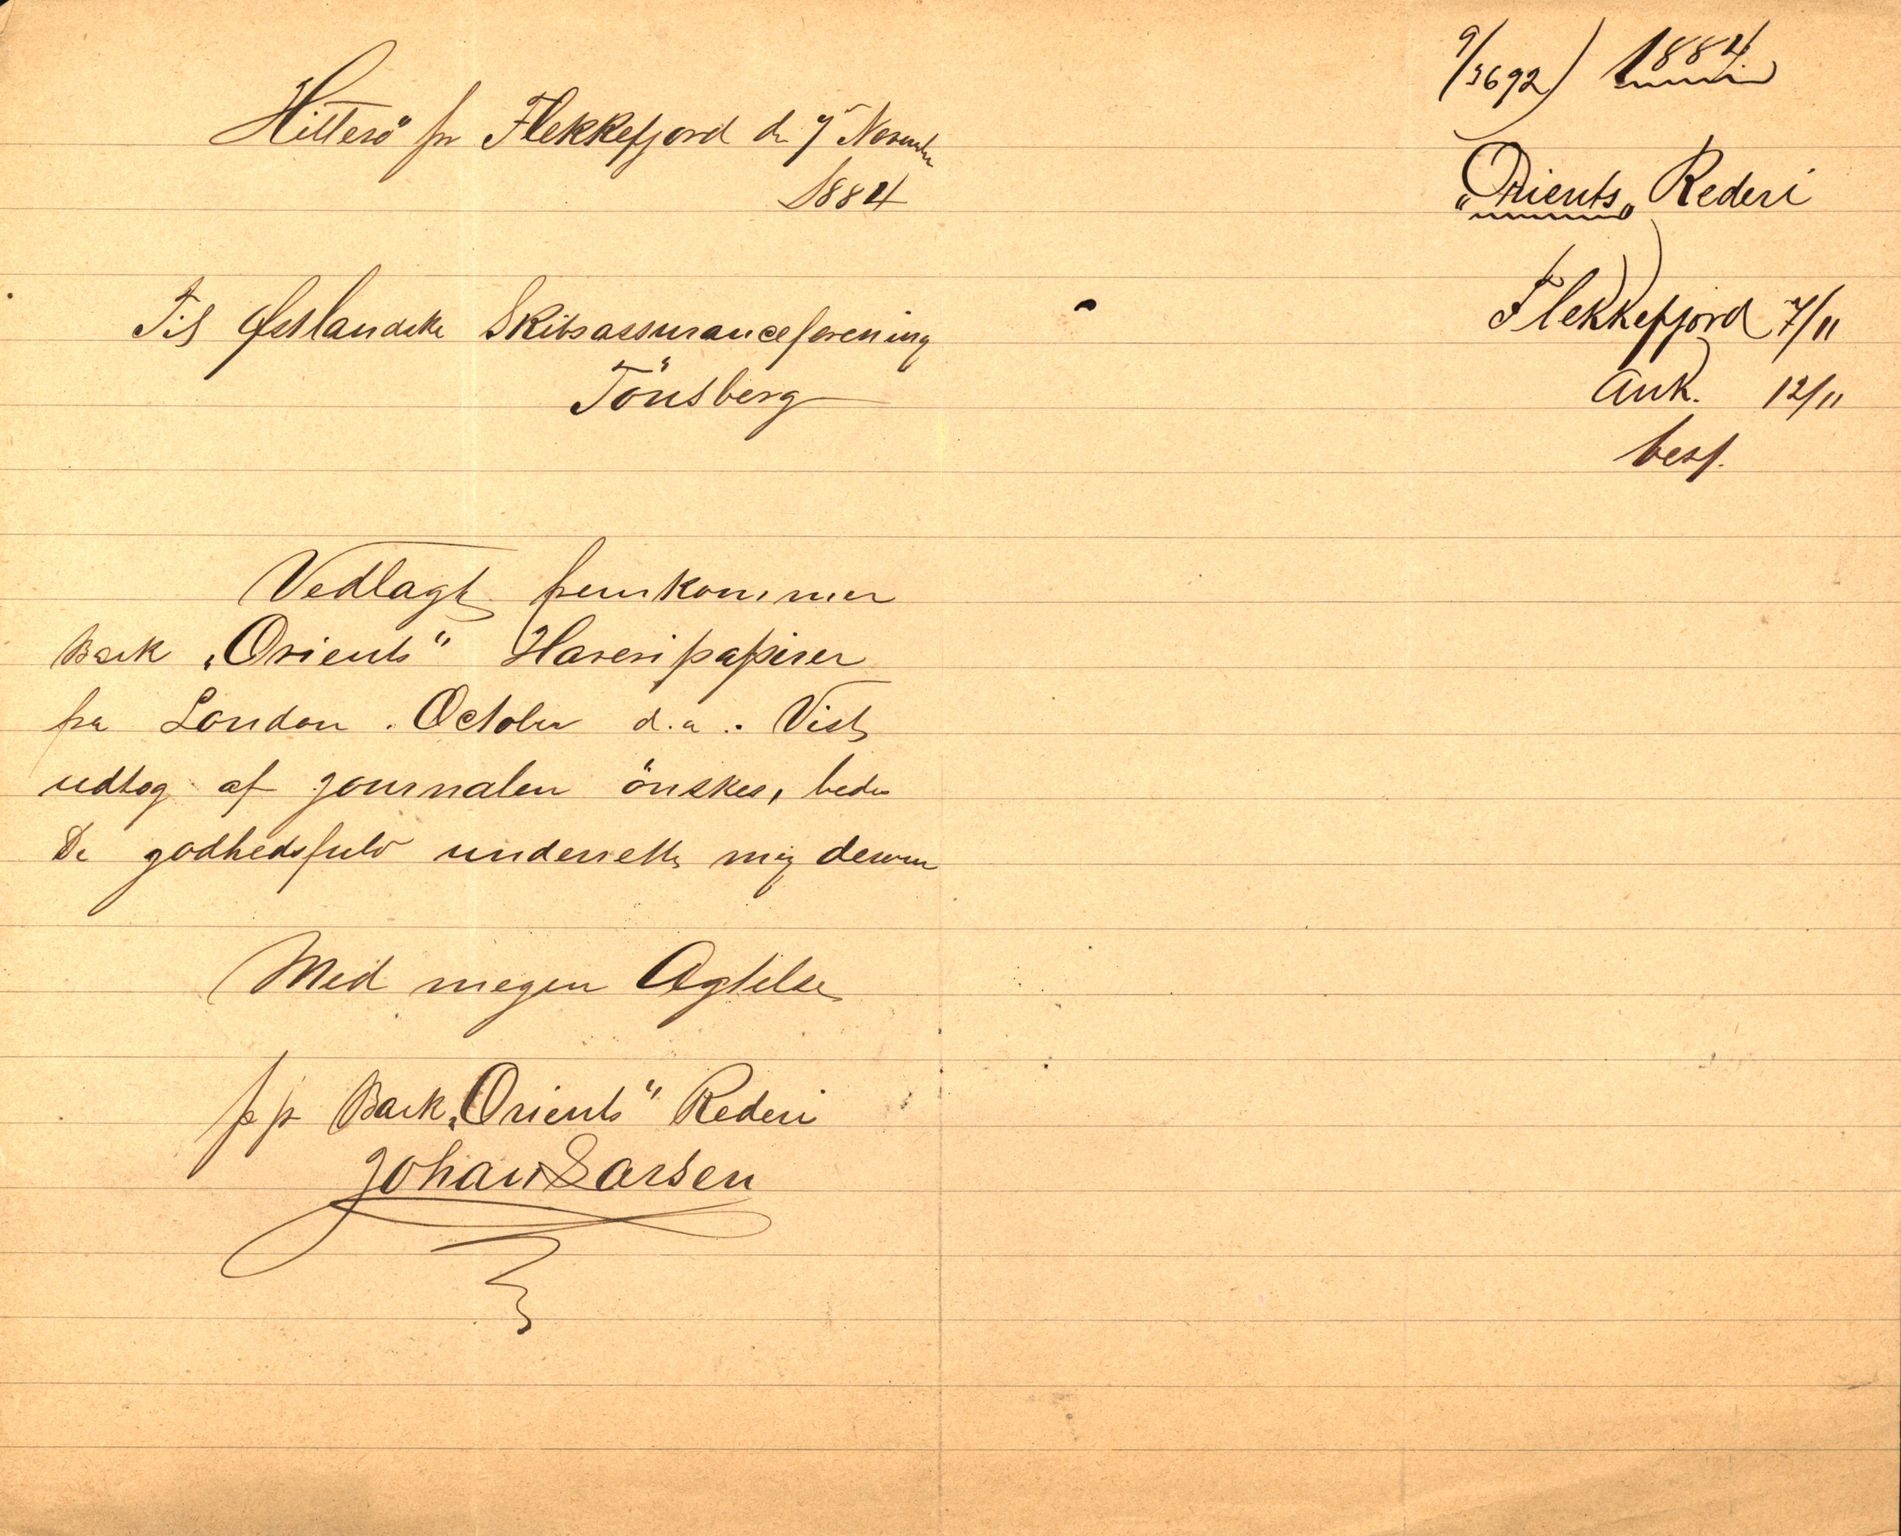 Hitterö pr Flekkefjord d 7 November
1884
Til Østlandske Skibsassuranceforening
Tönsberg
Vedlagt fremkommer
Bark „Orients“ Havaripapirer
fra London. October d.a. Vist
udtog af journalen önskes, bedes
De godhedsfuld underrette mig derom
Med megen Agtelse
pp Bark „Orients“ Rederi
Johan Larsen
9/3692) 1884
„Orients“ Rederi
Flekkefjord 7/11
Ank. 12/11
besv.